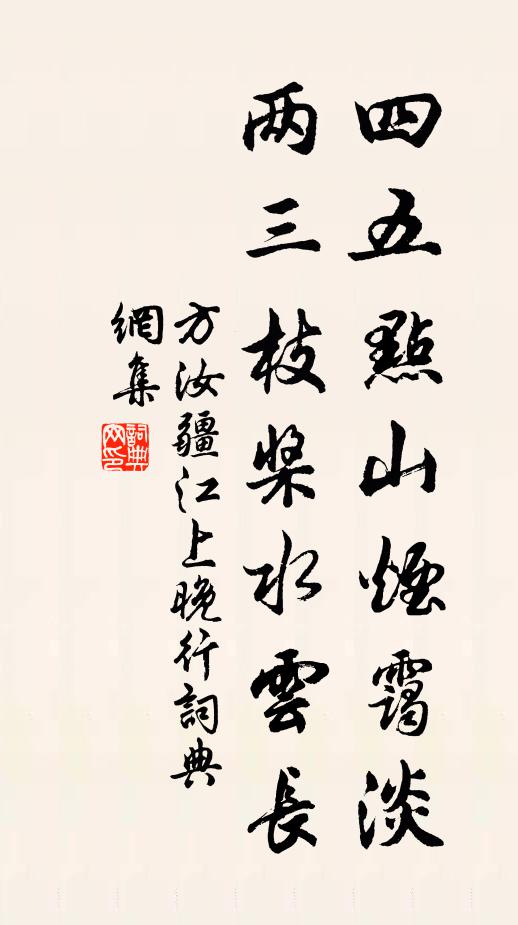 四五點山煙靄淡
两三枝槳水雲長
方汝疆江上晚行詞典
網集
詞典網印